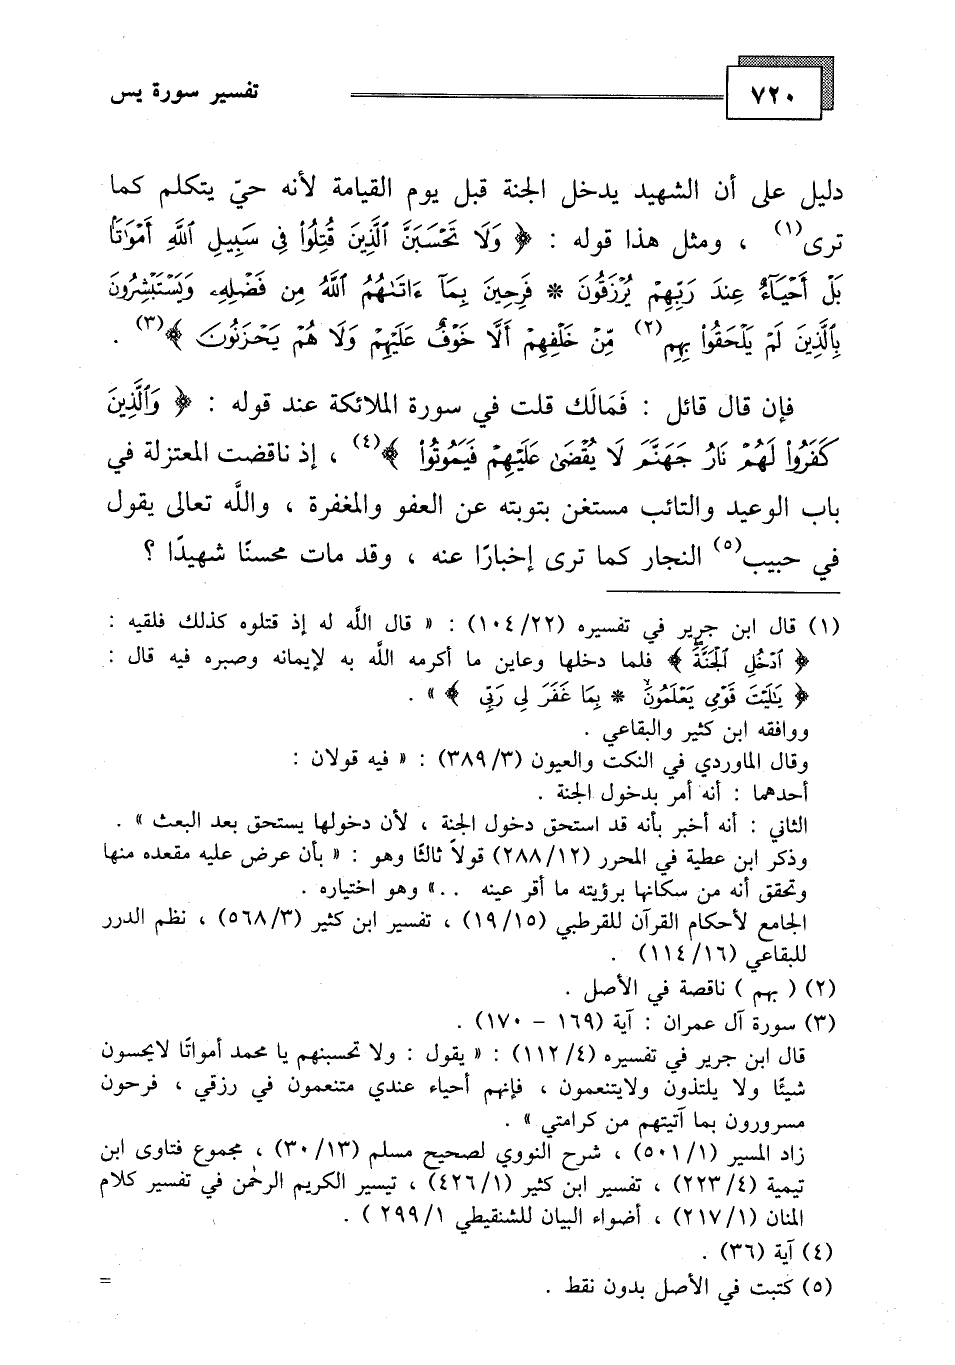 ٧٢٠ تفسير سورة يس
دليل على أن الشهيد يدخل الجنة قبل يوم القيامة لأنه حيّ يتكلم كما
ترى(١) ، ومثل هذا قوله : ﴿ وَلَا تَحْسَبَنَّ ٱلَّذِينَ قُتِلُوا۟ فِى سَبِيلِ ٱللَّهِ أَمْوَٰتًۢا
بَلْ أَحْيَآءٌ عِندَ رَبِّهِمْ يُرْزَقُونَ * فَرِحِينَ بِمَآ ءَاتَىٰهُمُ ٱللَّهُ مِن فَضْلِهِۦ وَيَسْتَبْشِرُونَ
بِٱلَّذِينَ لَمْ يَلْحَقُوا۟ بِهِم(٢) مِّنْ خَلْفِهِمْ أَلَّا خَوْفٌ عَلَيْهِمْ وَلَا هُمْ يَحْزَنُونَ ﴾(٣) .
فإن قال قائل : فَمَالَك قلت في سورة الملائكة عند قوله : ﴿ وَٱلَّذِينَ
كَفَرُوا۟ لَهُمْ نَارُ جَهَنَّمَ لَا يُقْضَىٰ عَلَيْهِمْ فَيَمُوتُوا۟ ﴾(٤) ، إذ ناقضت المعتزلة في
باب الوعيد والتائب مستغن بتوبته عن العفو والمغفرة ، واللَّه تعالى يقول
في حبيب(٥) النجار كما ترى إخبارًا عنه ، وقد مات محسنًا شهيدًا ؟
(١) قال ابن جرير في تفسيره (١٠٤/٢٢) : « قال اللَّه له إذ قتلوه كذلك فلقيه :
﴿ ٱدْخُلِ ٱلْجَنَّةَ ﴾ فلما دخلها وعاين ما أكرمه اللَّه به لإيمانه وصبره فيه قال :
﴿ يَٰلَيْتَ قَوْمِى يَعْلَمُونَ * بِمَا غَفَرَ لِى رَبِّى ﴾ » .
ووافقه ابن كثير والبقاعي .
وقال الماوردي في النكت والعيون (٣٨٩/٣) : « فيه قولان :
أحدهما : أنه أمر بدخول الجنة .
الثاني : أنه أخبر بأنه قد استحق دخول الجنة ، لأن دخولها يستحق بعد البعث » .
وذكر ابن عطية في المحرر (٢٨٨/١٢) قولاً ثالثًا وهو : « بأن عرض عليه مقعده منها
وتحقق أنه من سكانها برؤيته ما أقر عينه .. » وهو اختياره .
الجامع لأحكام القرآن للقرطبي (١٩/١٥) ، تفسير ابن كثير (٥٦٨/٣) ، نظم الدرر
للبقاعي (١١٤/١٦) .
(٢) ( بهم ) ناقصة في الأصل .
(٣) سورة آل عمران : آية (١٦٩ - ١٧٠) .
قال ابن جرير في تفسيره (١١٢/٤) : « يقول : ولا تحسبنهم يا محمد أمواتًا لايحسون
شيئًا ولا يلتذون ولايتنعمون ، فإنهم أحياء عندي متنعمون في رزقي ، فرحون
مسرورون بما آتيتهم من كرامتي » .
زاد المسير (٥٠١/١) ، شرح النووي لصحيح مسلم (٣٠/١٣) ، مجموع فتاوى ابن
تيمية (٢٢٣/٤) ، تفسير ابن كثير (٤٢٦/١) ، تيسير الكريم الرحمٰن في تفسير كلام
المنان (٢١٧/١) ، أضواء البيان للشنقيطي ٢٩٩/١ ) .
(٤) آية (٣٦) .
(٥) كتبت في الأصل بدون نقط . =